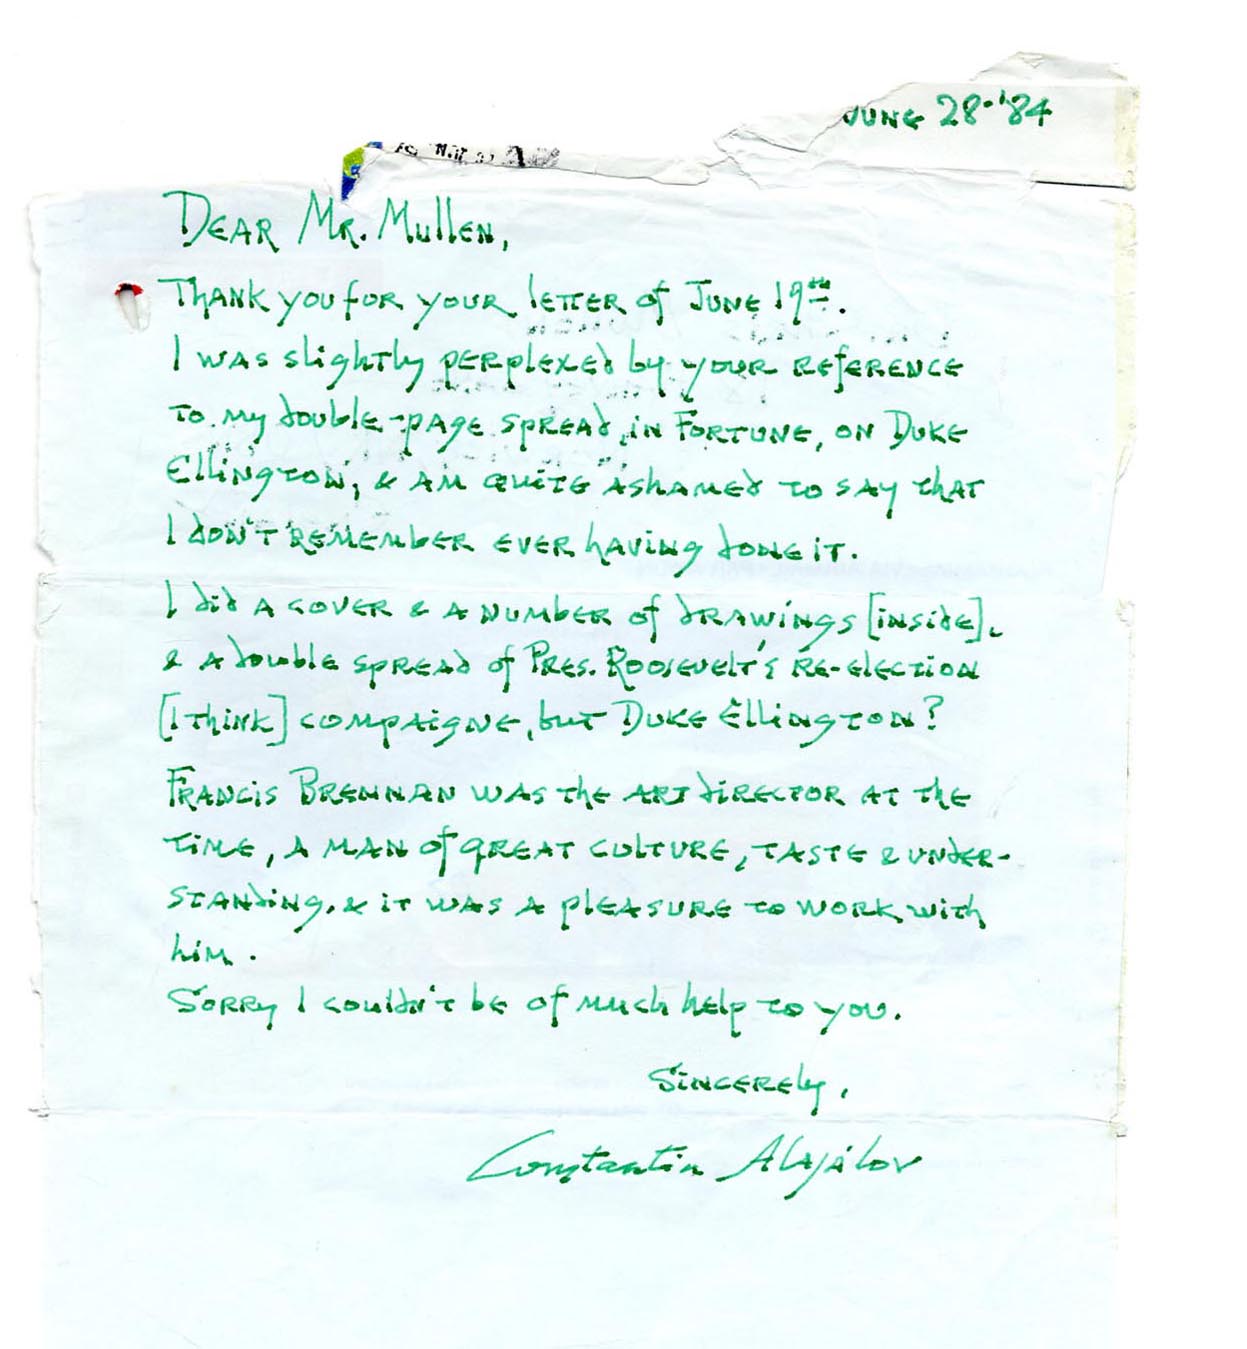 JUNE 28-'84
DEAR MR. MULLEN,
THANK YOU FOR YOUR LETTER OF JUNE 19th.
I WAS SLIGHTLY PERPLEXED BY YOUR REFERENCE
TO MY DOUBLE-PAGE SPREAD, IN FORTUNE, ON DUKE
ELLINGTON, & AM QUITE ASHAMED TO SAY THAT
I DON'T REMEMBER EVER HAVING DONE IT.
I DID A COVER & A NUMBER OF DRAWINGS [INSIDE],
& A DOUBLE SPREAD OF PRES. ROOSEVELT'S RE-ELECTION
[I THINK] COMPAIGNE, BUT DUKE ELLINGTON?
FRANCIS BRENNAN WAS THE ART DIRECTOR AT THE
TIME, A MAN OF GREAT CULTURE, TASTE & UNDER-
STANDING, & IT WAS A PLEASURE TO WORK WITH
HIM.
SORRY I COULDN'T BE OF MUCH HELP TO YOU.
SINCERELY,
Constantin Alajálov